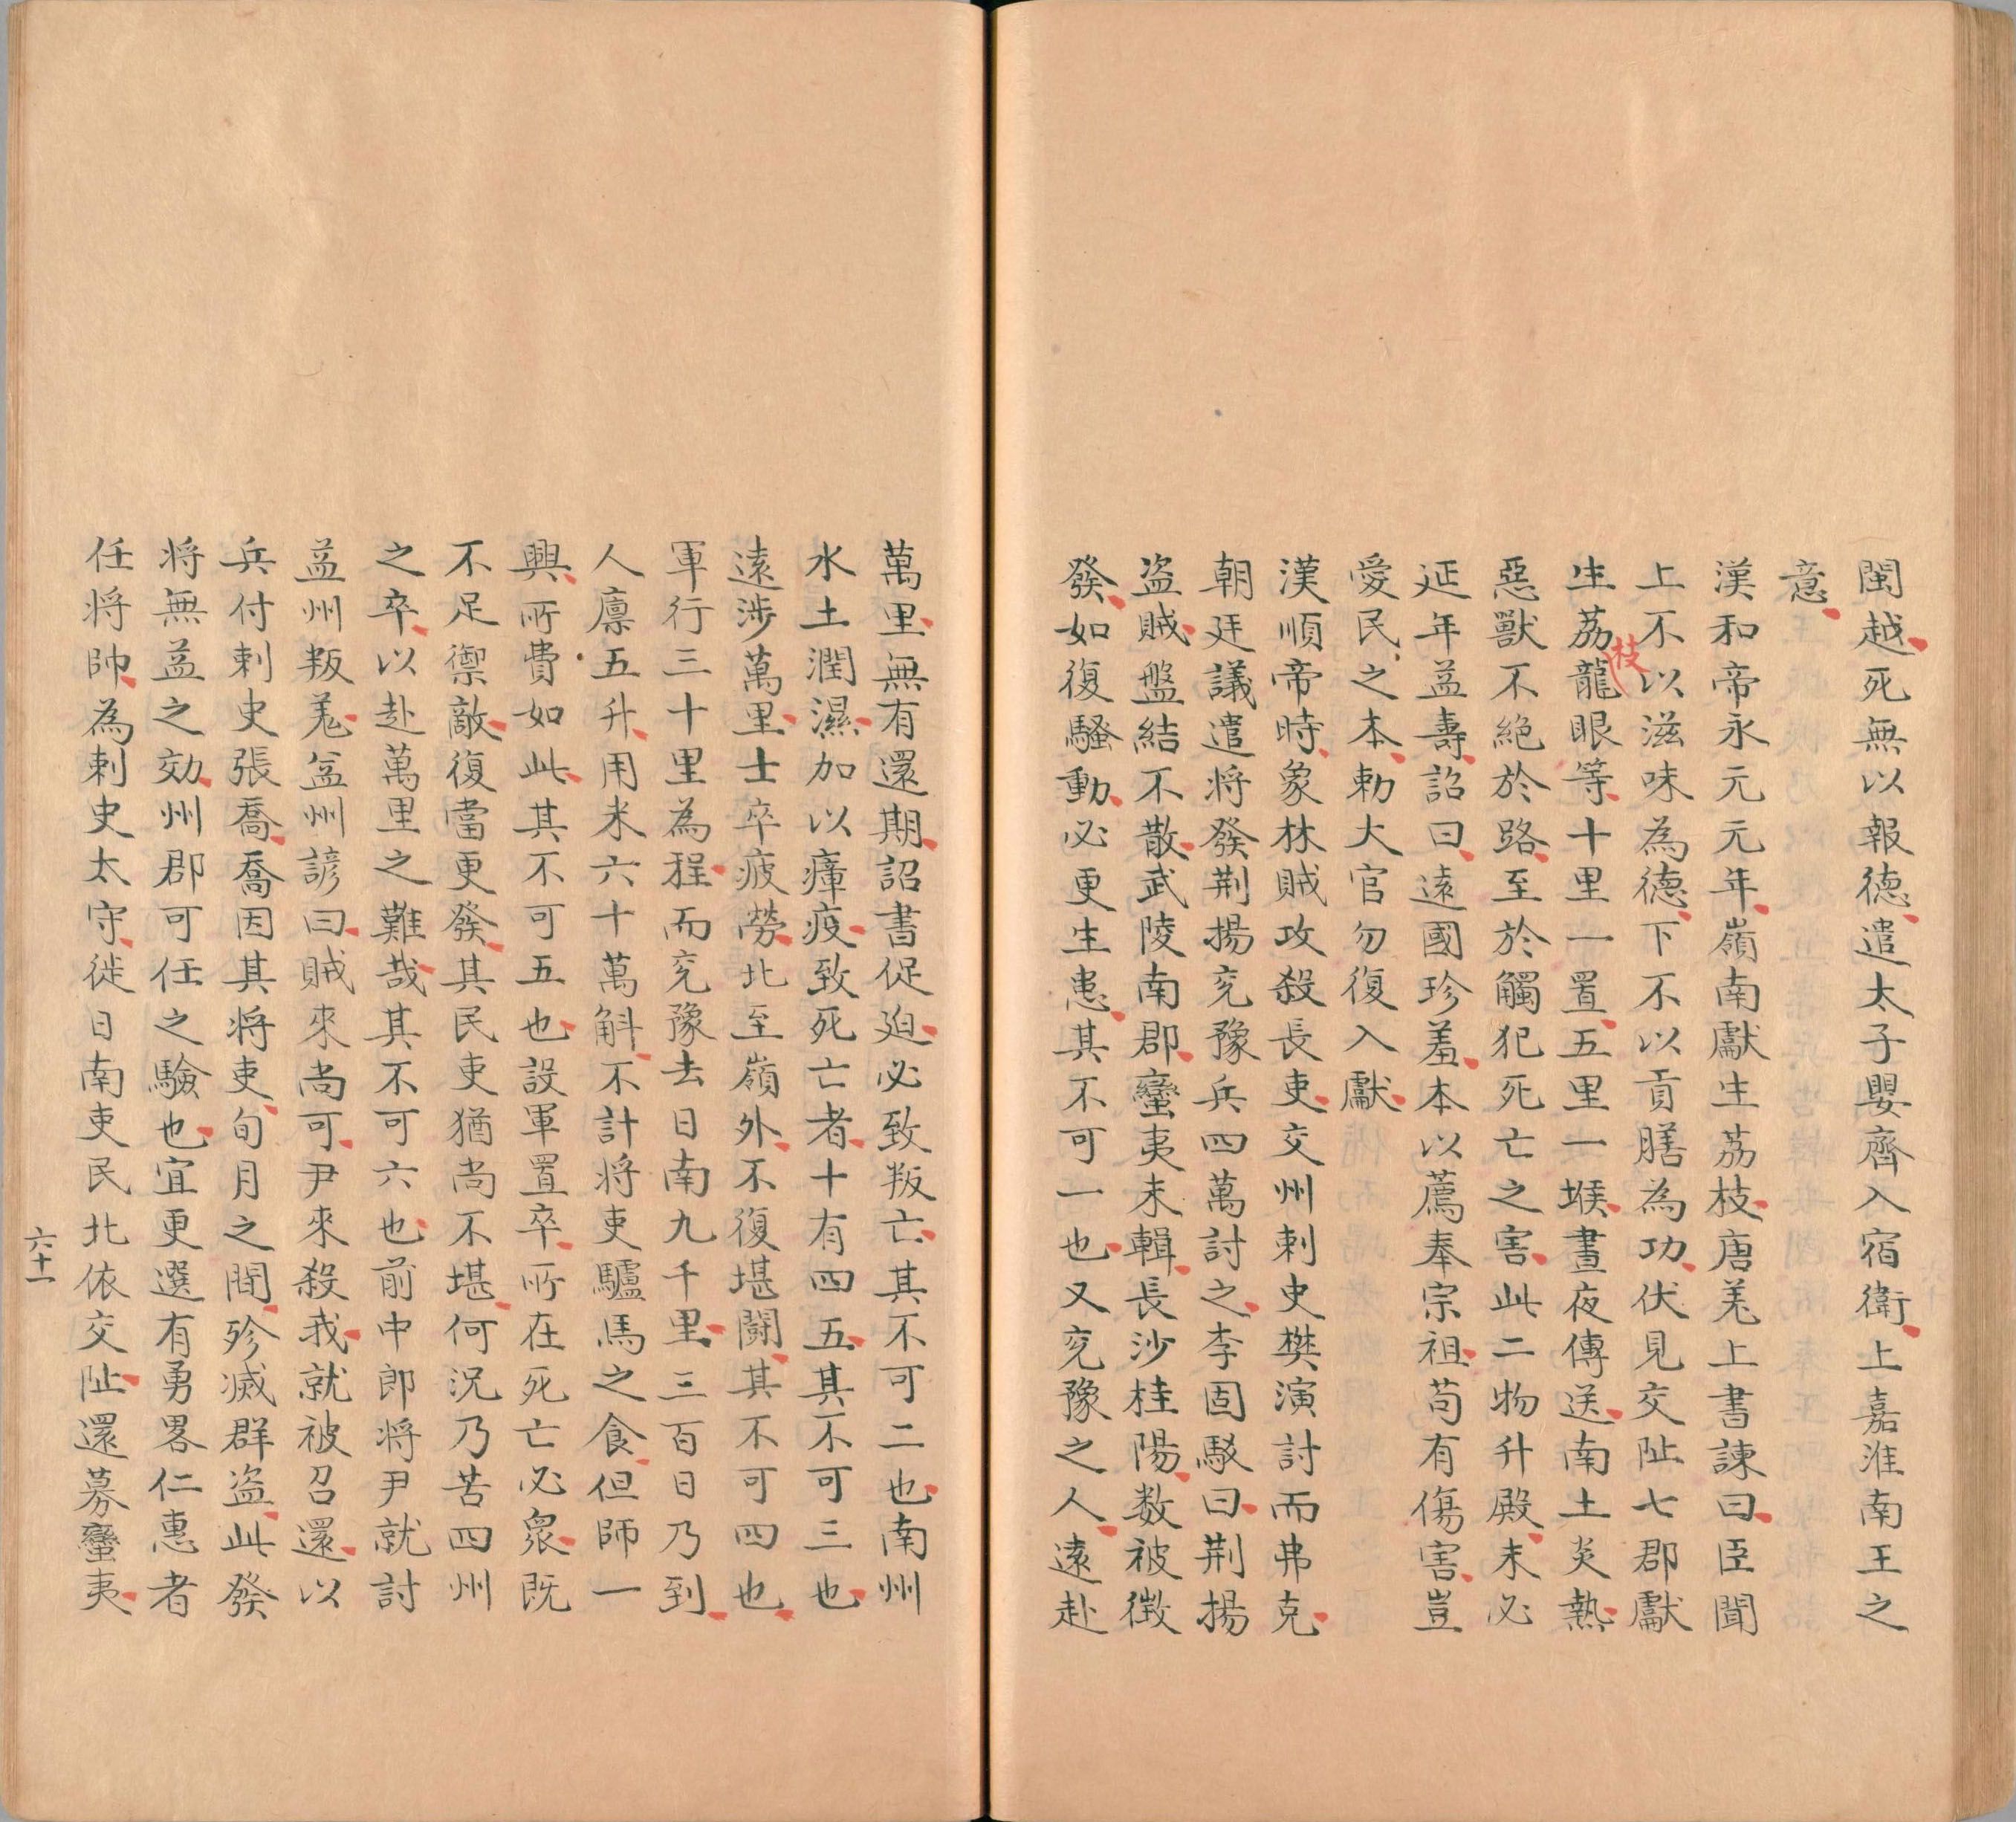 閩越死無以報德遣太子嬰齊入宿衛上嘉淮南王之
意
漢和帝永元元年嶺南獻生荔枝唐羌上書諫曰臣聞
上不以滋味為德下不以貢膳為功伏見交阯七郡獻
生荔枝龍眼等十里一置五里一堠晝夜傳送南土炎熱
惡獸不絕於路至於觸犯死亡之害此二物升殿未必
延年益壽詔曰遠國珍羞本以薦奉宗祖苟有傷害豈
愛民之本勅大官勿復入獻
漢順帝時象林賊攻殺長吏交州刺史樊演討而弗克
朝廷議遣將發荆揚兖豫兵四萬討之李固駁曰荆揚
盗賊盤結不散武陵南郡蠻夷未輯長沙桂陽数被徴
發如復騷動必更生患其不可一也又兖豫之人遠赴
萬里無有還期詔書促廹必致叛亡其不可二也南州
水土潤濕加以瘴疫致死亡者十有四五其不可三也
遠涉萬里士卒疲勞北至嶺外不復堪鬪其不可四也
軍行三十里為程而兖豫去日南九千里三百日乃到
人廪五升用米六十萬斛不計將吏驢馬之食但師一
興所費如此其不可五也設軍置卒所在死亡必衆既
不足禦敵復當更發其民吏猶尚不堪何況乃苦四州
之卒以赴萬里之難哉其不可六也前中郎將尹就討
益州叛羌益州諺曰賊來尚可尹來殺我就被召還以
兵付刺史張喬喬因其將吏旬月之間殄滅群盗此發
將無益之効州郡可任之驗也宜更選有勇畧仁惠者
任將帥為刺史太守徙日南吏民北依交阯還募蠻夷
六十一